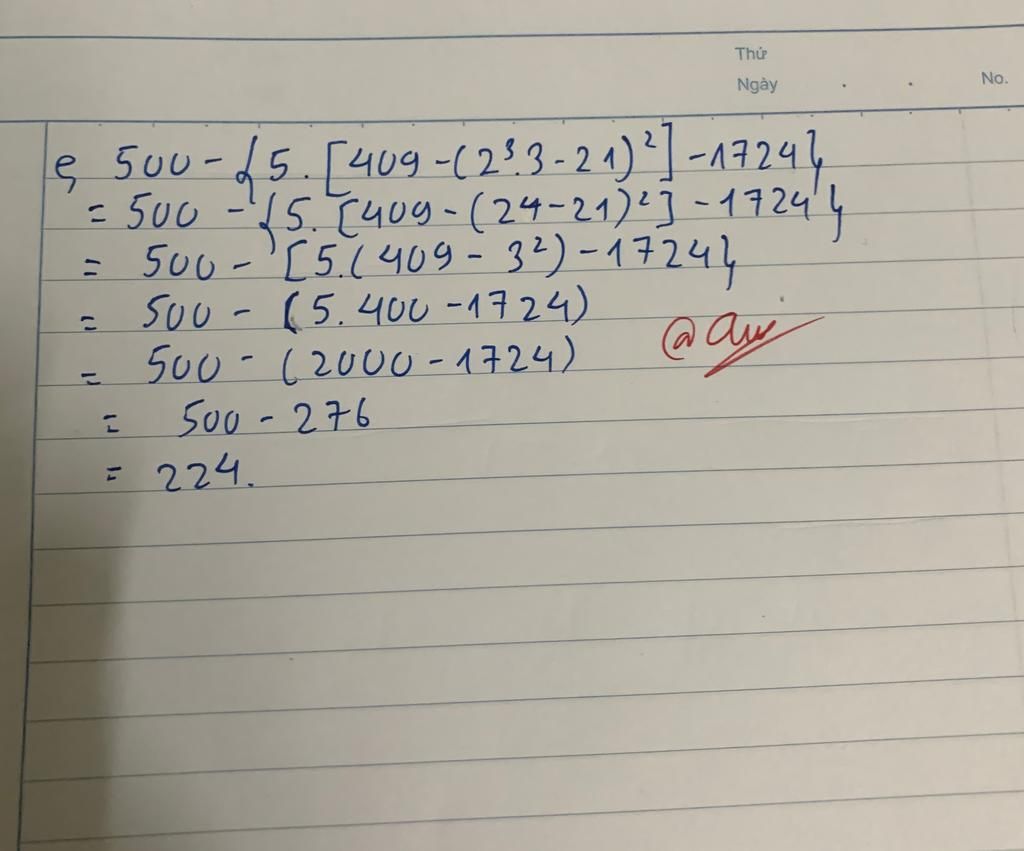 Thứ
Ngày . . No.
e, 500 - {5. [409 - (2³.3 - 21)²] - 1724}
= 500 - {5. [409 - (24 - 21)²] - 1724}
= 500 - [5.(409 - 3²) - 1724}
= 500 - (5. 400 - 1724)
= 500 - (2000 - 1724)
= 500 - 276
= 224.